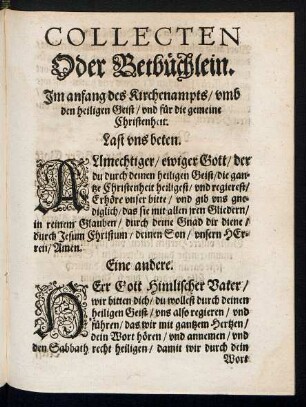 COLLECTEN
Oder Betbüchlein.
Im anfang des Kirchenampts / vmb
den heiligen Geist / vnd für die gemeine
Christenheit.
Last vns beten.
ALlmechtiger / ewiger Gott / der
du durch deinen heiligen Geist / die gan-
tze Christenheit heiligest / vnd regierest /
Erhöre vnser bitte / vnd gib vns gne-
diglich / das sie mit allen jren Gliedern /
in reinem Glauben / durch deine Gnad dir diene /
durch Jesum Christum / deinen Son / vnsern HEr-
rein / Amen.
Eine andere.
HEr Gott Himlischer Vater /
wir bitten dich / du wollest durch deinen
heiligen Geist / vns also regieren / vnd
führen / das wir mit gantzem Hertzen /
dein Wort hören / vnd annemen / vnd
den Sabbath recht heiligen / damit wir durch dein
Wort